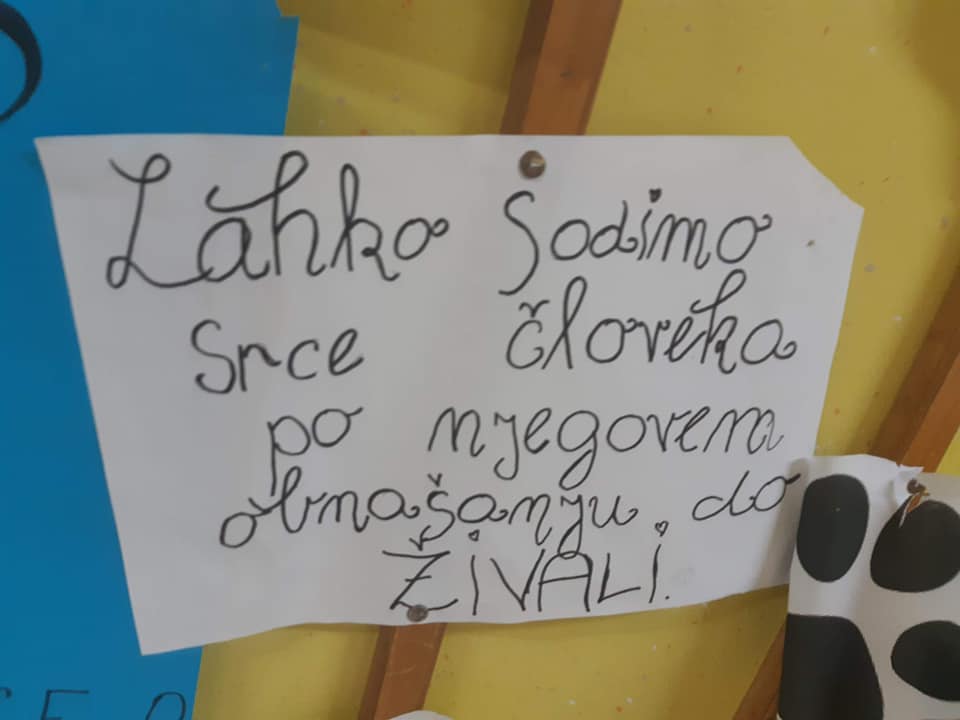 Lahko sodimo
srce človeka
po njegovem
obnašanju do
ŽIVALI.